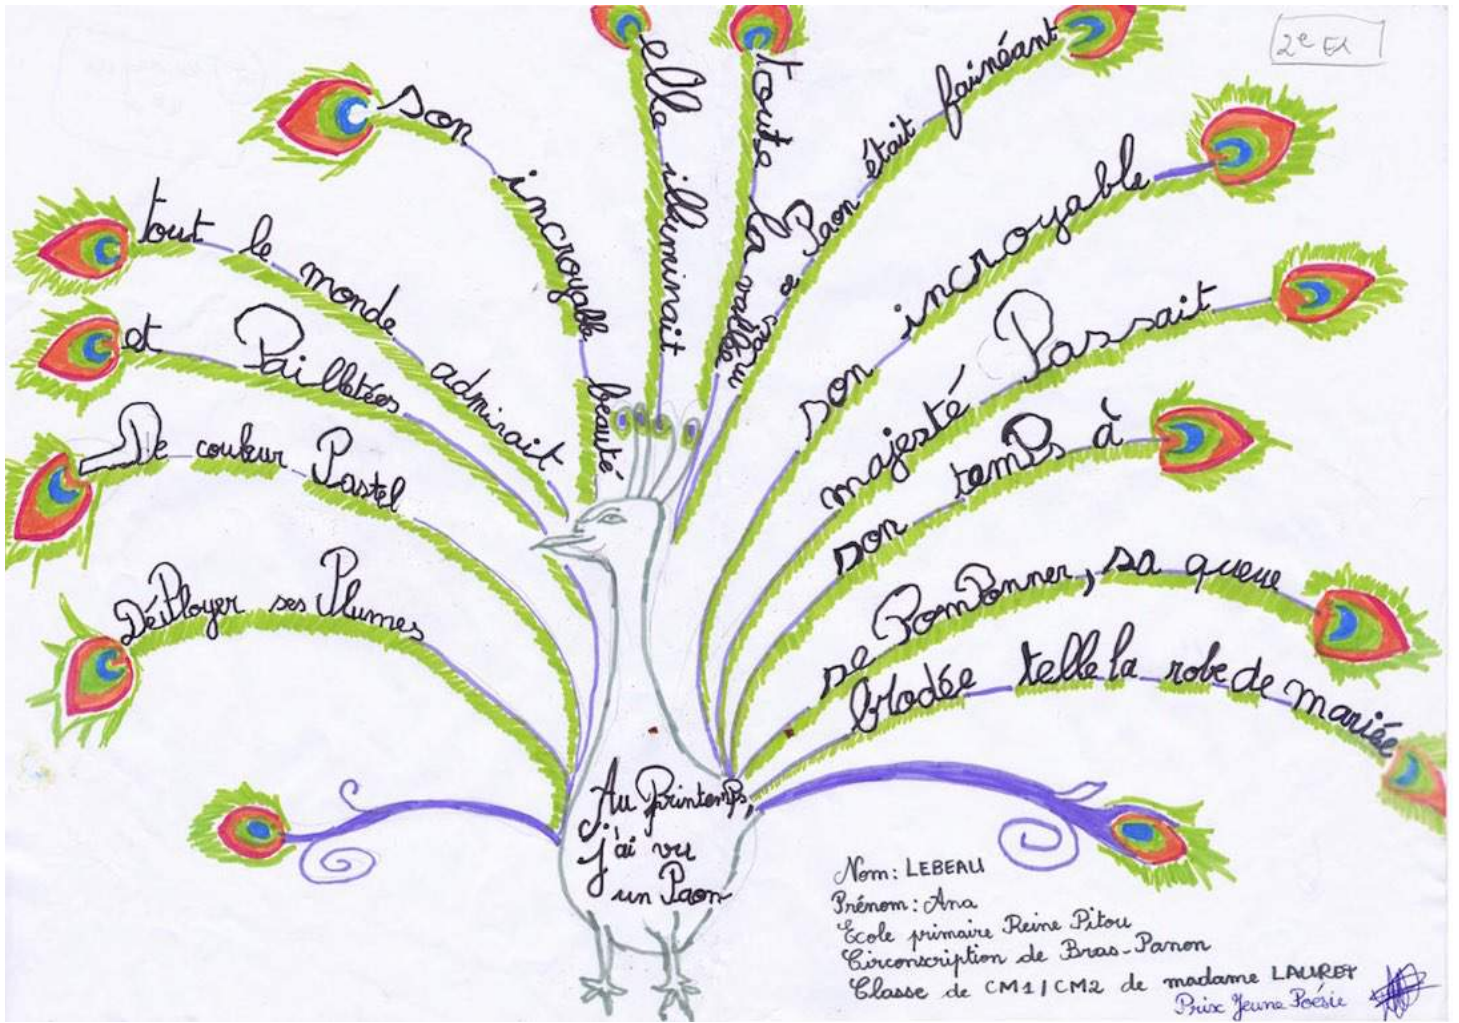 Au Printemps,
j'ai vu
un Paon
Déployer ses Plumes
De couleur Pastel
et Pailletées
tout le monde admirait
son incroyable beauté
elle illuminait
toute la vallée
mais ce Paon était fainéant
son incroyable
majesté Passait
son temPs à
se PomPonner, sa queue
brodée telle la robe de mariée
2e Ex
Nom: LEBEAU
Prénom: Ana
Ecole primaire Reine Pitou
Circonscription de Bras-Panon
Classe de CM1/CM2 de madame LAURET
Prix Jeune Poésie